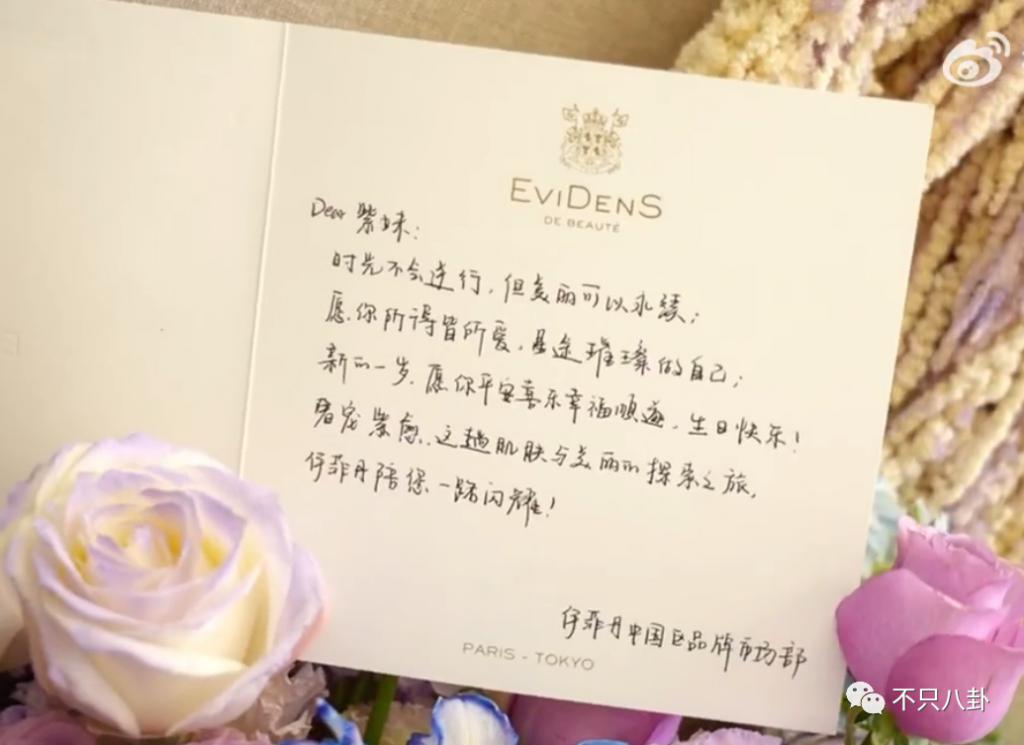 EVIDENS
DE BEAUTÉ
Dear 紫妹:
时光不会逆行,但美丽可以永续;
愿你所得皆所爱,星途璀璨做自己;
新的一岁,愿你平安喜乐幸福顺遂,生日快乐!
宠紫愈,这趟肌肤与美丽的探索之旅,
伊菲丹陪您一路闪耀!
伊菲丹中国区品牌市场部
PARIS - TOKYO
不只八卦